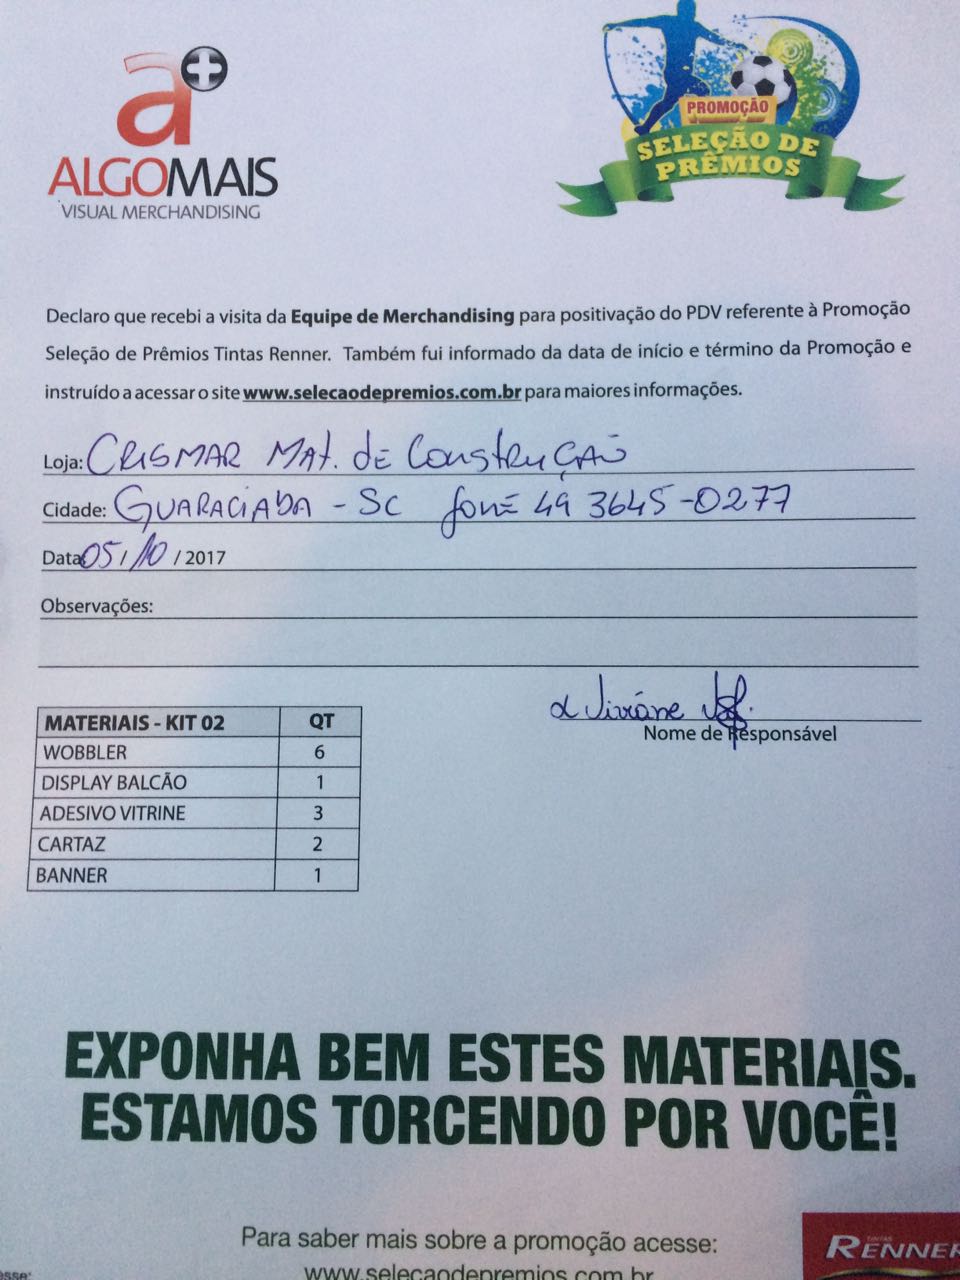 a+
ALGOMAIS
VISUAL MERCHANDISING
PROMOÇÃO
SELEÇÃO DE
PRÊMIOS
Declaro que recebi a visita da Equipe de Merchandising para positivação do PDV referente à Promoção
Seleção de Prêmios Tintas Renner. Também fui informado da data de início e término da Promoção e
instruído a acessar o site www.selecaodepremios.com.br para maiores informações.
Loja: CRISMAR MAT. DE CONSTRUÇÃO
Cidade: GUARACIABA - SC fone 49 3645-0277
Data: 05/10/2017
Observações:
Viviane
Nome de Responsável
MATERIAIS - KIT 02 QT
WOBBLER 6
DISPLAY BALCÃO 1
ADESIVO VITRINE 3
CARTAZ 2
BANNER 1
EXPONHA BEM ESTES MATERIAIS.
ESTAMOS TORCENDO POR VOCÊ!
Para saber mais sobre a promoção acesse:
www.selecaodepremios.com.br
TINTAS
RENNER